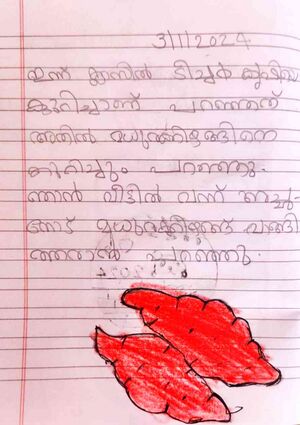 3/11/2024
ഇന്ന് ക്ലാസിൽ ടീച്ചർ കൃഷിയെ
കുറിച്ചാണ് പറഞ്ഞത്
അതിൽ മധുരക്കിഴങ്ങിനെ
കുറിച്ചും പറഞ്ഞു.
ഞാൻ വീട്ടിൽ വന്ന് അച്ഛ-
നോട് മധുരക്കിഴങ്ങ് വാങ്ങി
ത്തരാൻ പറഞ്ഞു.